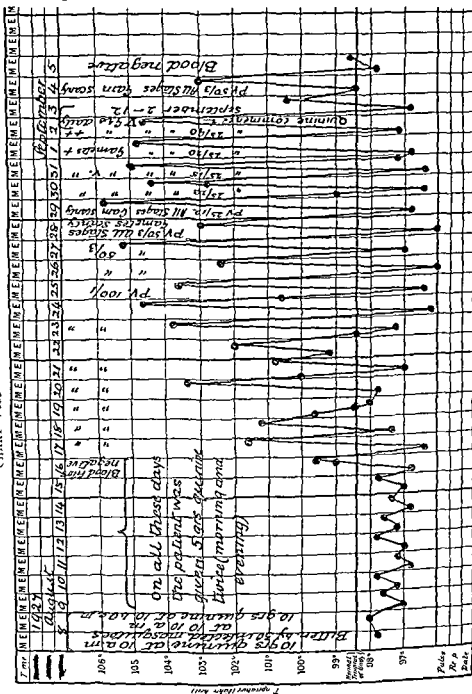 Time M E M E M E M E M E M E M E M E M E M E M E M E M E M E M E M E M E M E M E M E M E M E M E M E M E M E M E M E M E
1927
August
September
8 9 10 11 12 13 14 15 16 17 18 19 20 21 22 23 24 25 26 27 28 29 30 31 1 2 3 4 5
106°
105°
104°
103°
102°
101°
100°
99°
98°
97°
Pulse
Date
10 grs quinine at 10 a m
Bitten by 50 infected mosquitoes
at 10 10 a m
10 grs quinine at 10 40 a m
on all these days
the patient was
given 5 grs quinine
twice (morning and
evening)
Blood film
negative
" "
" "
" "
" "
" "
" "
" "
PV 100/1
" "
" 50/3
PV 50/3 All Stages
Gametes Scanty
PV 25/12 All Stages Gam scanty
" 25/12 " " "
" 25/15 " " V "
" 25/20 Gametes +
" 25/40 " " ++
Quinine commenced
September 2-12
PV 50/3 All Stages Gam scanty
Blood negative